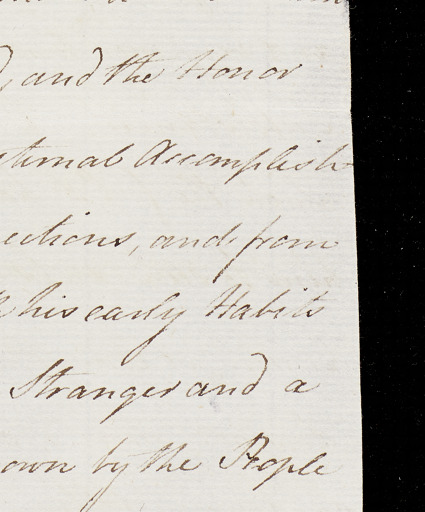 , and the Honor
ternal Accomplish
ections, and from
his early Habits
Stranger and a
own by the People